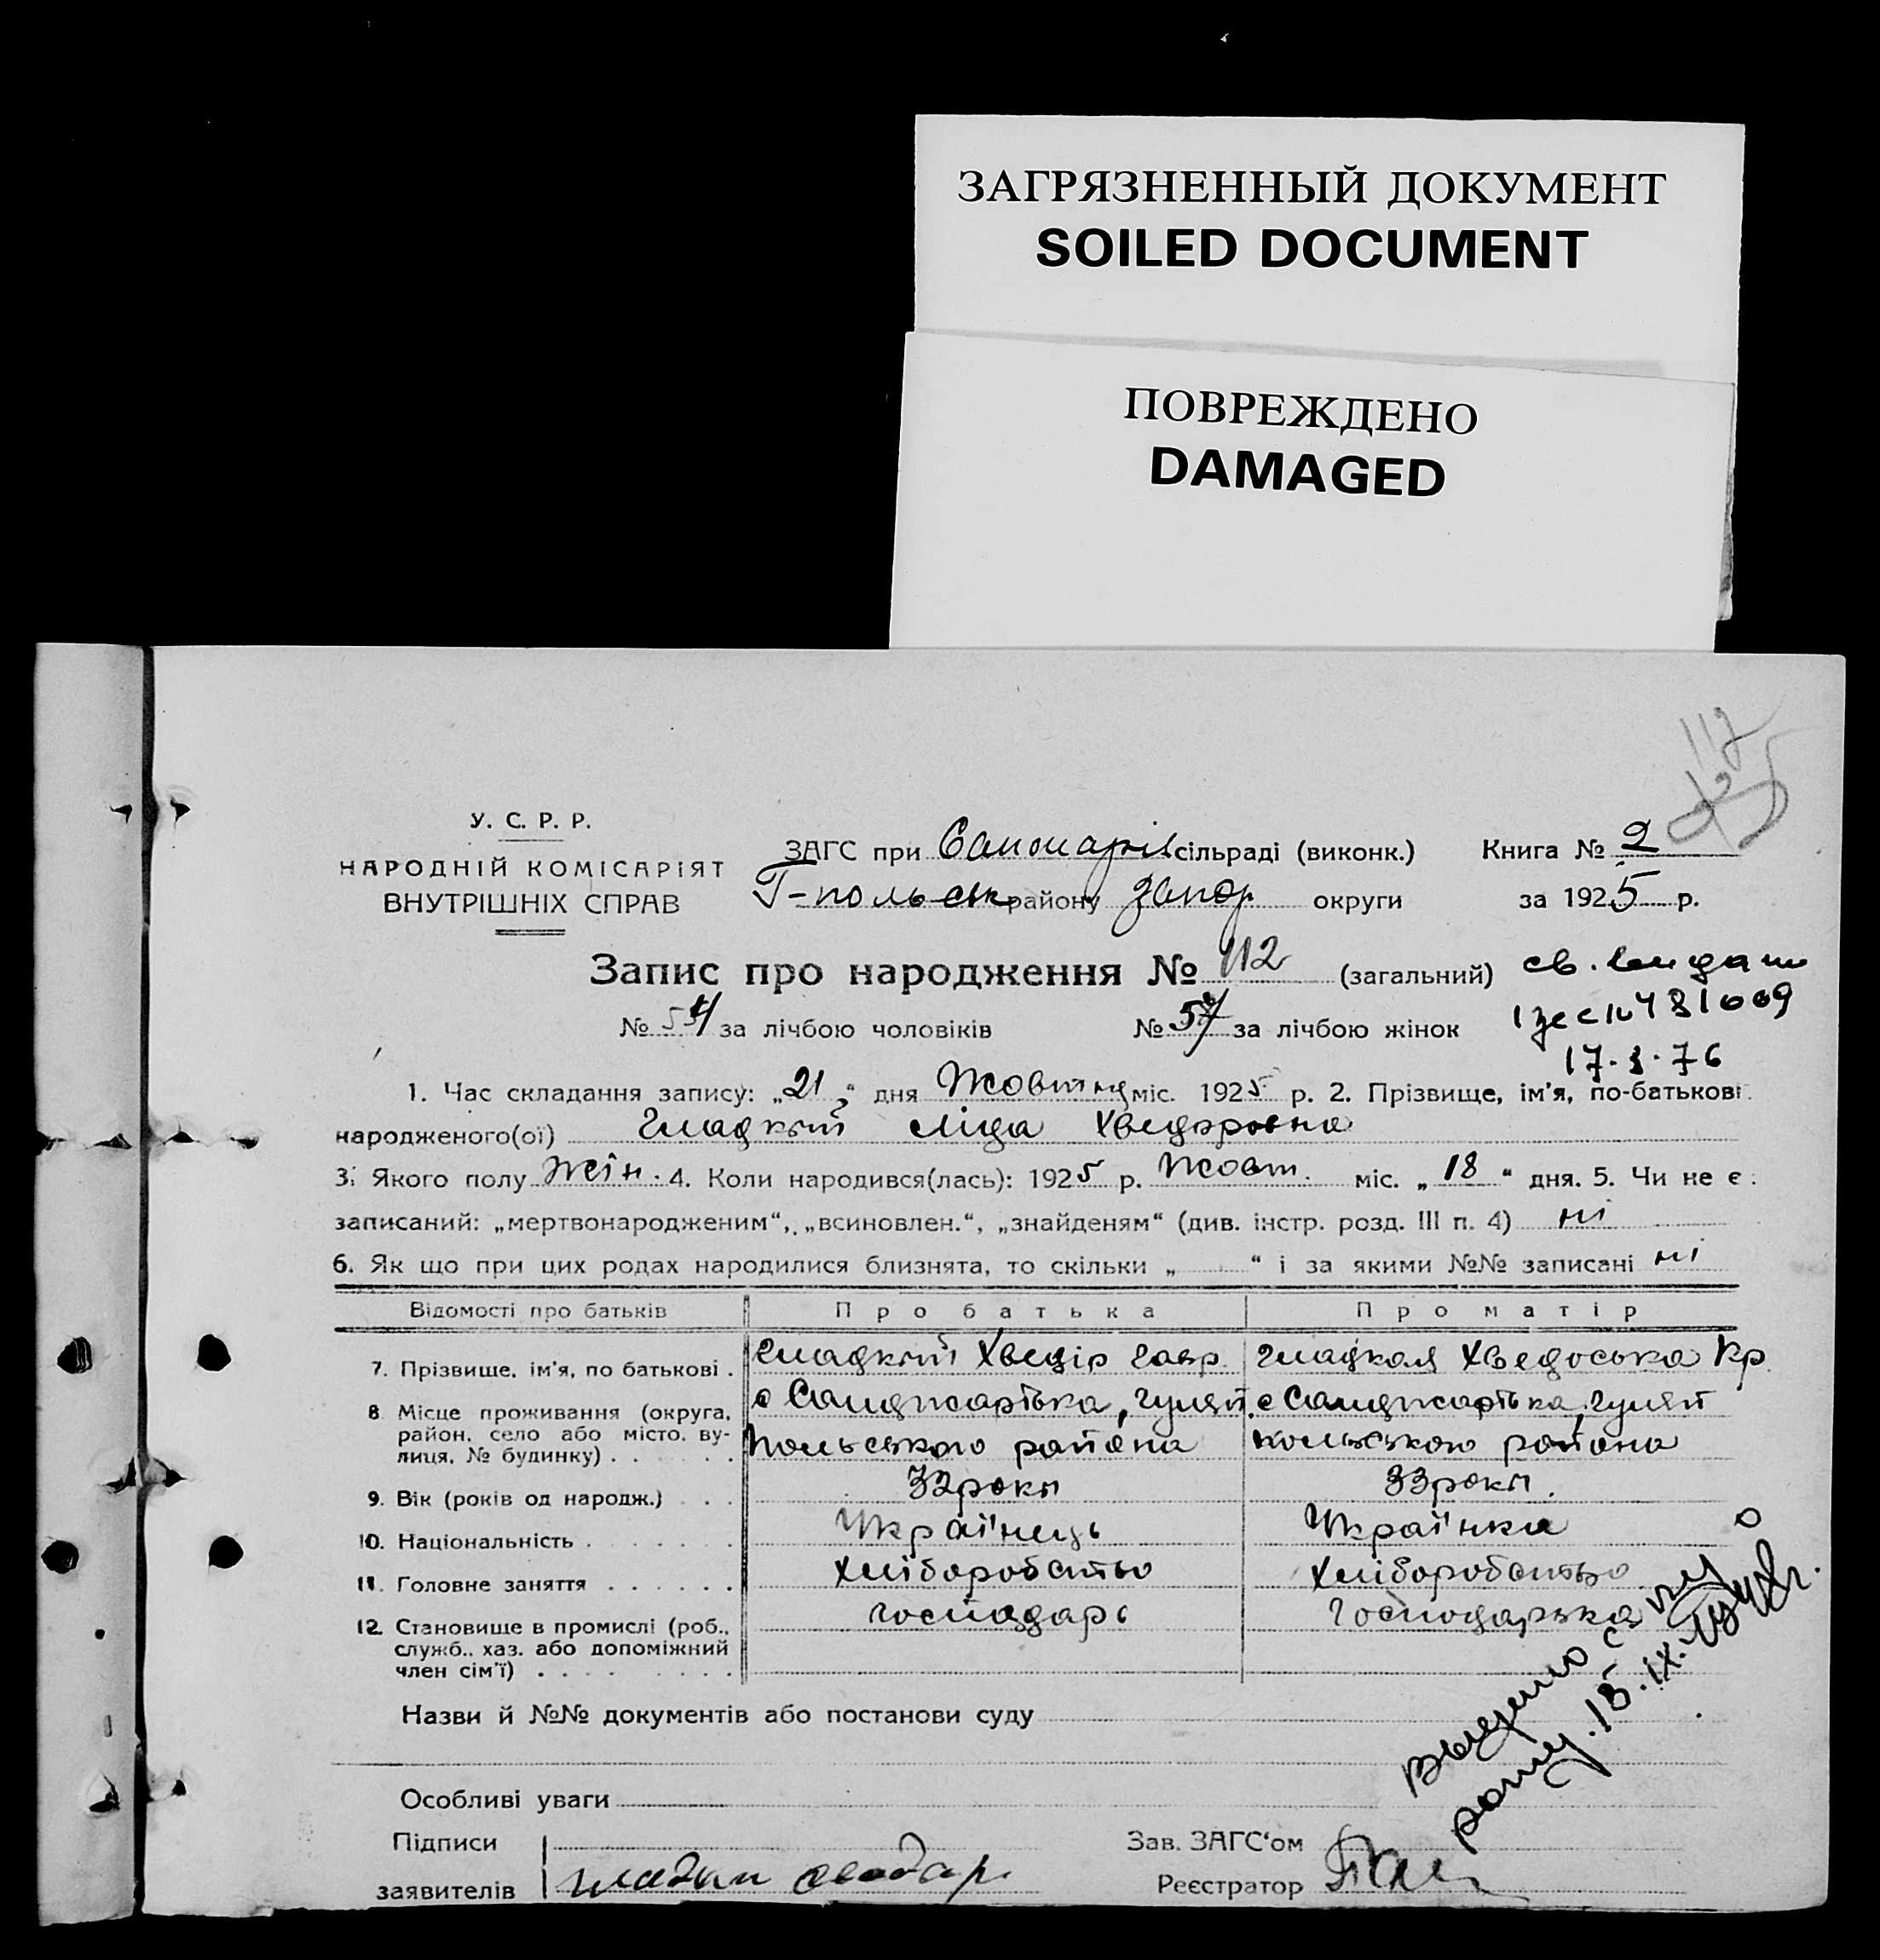 ЗАГРЯЗНЕННЫЙ ДОКУМЕНТ
SOILED DOCUMENT
ПОВРЕЖДЕНО
DAMAGED
У. С. Р. Р.
НАРОДНІЙ КОМІСАРІЯТ
ВНУТРІШНІХ СПРАВ
ЗАГС при сільраді (виконк.) Книга № 2
Г-польськ району Запор. округи за 1925 р.
Запис про народження № 112 (загальний)
№ за лічбою чоловіків № 57 за лічбою жінок
св. 
17.3.76
1. Час складання запису: „21“ дня Жовтня міс. 1925 р. 2. Прізвище, ім'я, по-батькові
народженого(ої) Гладкий Ліда Хведоровна
3. Якого полу жін. 4. Коли народився(лась): 1925 р. Жовт. міс. „18“ дня. 5. Чи не є
записаний: „мертвонародженим“, „всиновлен.“, „знайденям“ (див. інстр. розд. III п. 4) ні
6. Як що при цих родах народилися близнята, то скільки „ “ і за якими №№ записані ні
Відомості про батьків Про батька Про матір
7. Прізвище, ім'я, по батькові . Гладкий Хведір Гавр. Гладкая Хведоська Кр.
8 Місце проживання (округа, район, село або місто, вулиця, № будинку) . с Санджарівка, Гуляй с Санджарівка, Гуляй
польського района польського района
9. Вік (років од народж.) 32 роки 33 роки.
10. Національність Українець Українка
11. Головне заняття Хліборобство Хліборобство
12. Становище в промислі (роб., служб., хаз. або допоміжний член сім'ї) господарь Господарька
Назви й №№ документів або постанови суду
Особливі уваги
Підписи
заявителів
Зав. ЗАГС'ом
Реєстратор